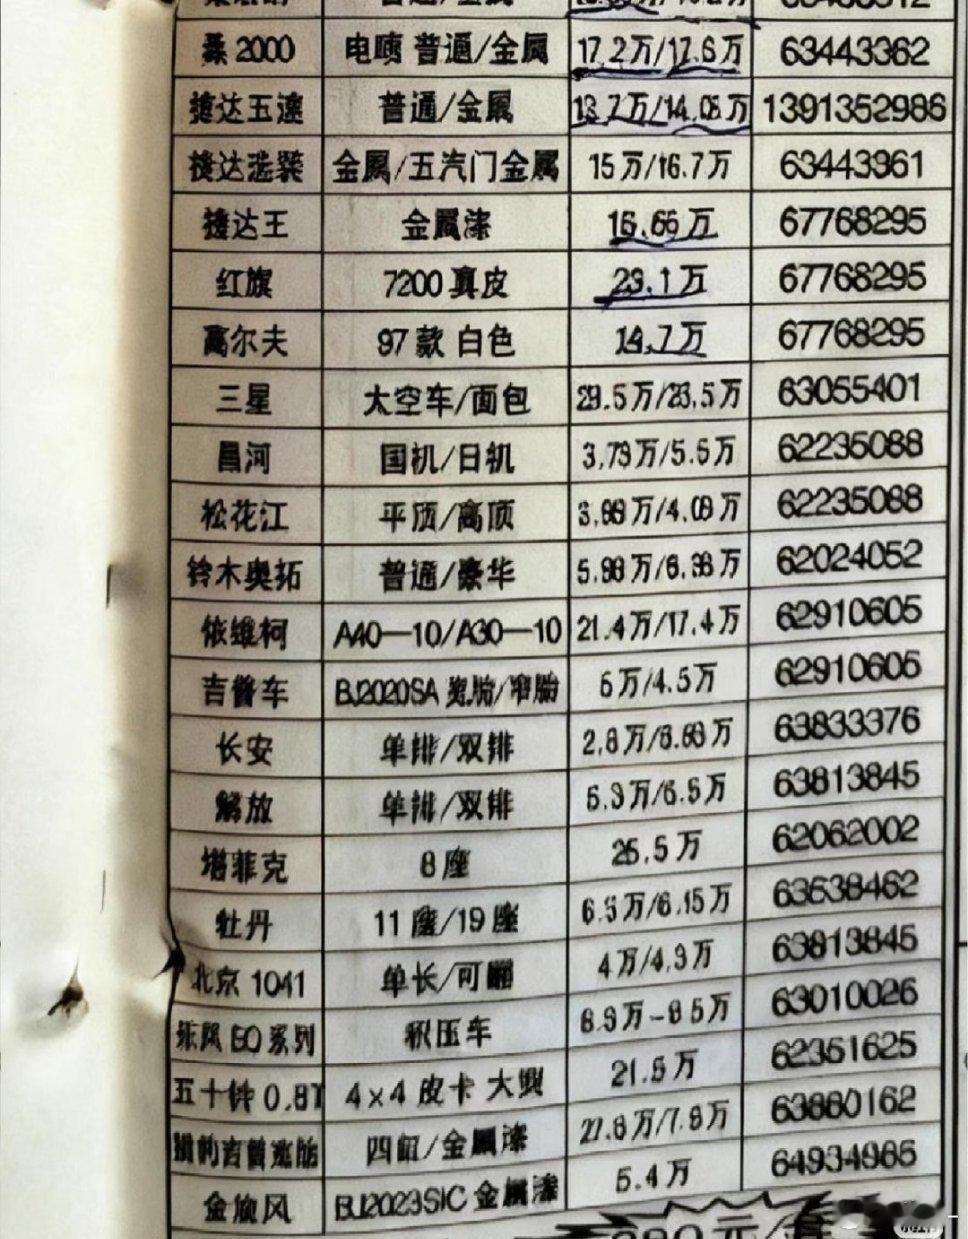 桑2000 电喷 普通/金属 17.2万/17.6万 63443362
捷达五速 普通/金属 13.7万/14.08万 1391352986
捷达选装 金属/五汽门金属 15万/16.7万 63443361
捷达王 金属漆 16.66万 67768295
红旗 7200真皮 23.1万 67768295
高尔夫 97款 白色 14.7万 67768295
三星 太空车/面包 29.5万/23.5万 63055401
昌河 国机/日机 3.79万/5.5万 62235088
松花江 平顶/高顶 3.98万/4.09万 62235088
铃木奥拓 普通/豪华 5.98万/6.38万 62024052
依维柯 A40—10/A30—10 21.4万/17.4万 62910605
吉普车 BJ2020SA 宽胎/窄胎 5万/4.5万 62910605
长安 单排/双排 63833376
解放 单排/双排 5.3万/6.5万 63813845
塔菲克 8座 25.5万 62062002
牡丹 11座/19座 6.3万/6.15万 63638462
北京1041 单长/可翻 4万/4.3万 63813845
东风EQ系列 积压车 63010026
五十铃0.8T 4×4皮卡 大型 21.5万 62351625
四缸/金属漆 63880162
金旋风 BJ2023S/C 金属漆 5.4万 64934985
280元/